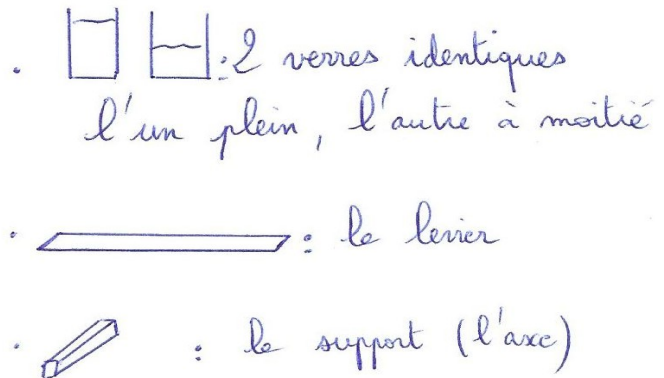 . : 2 verres identiques
l'un plein, l'autre à moitié
. : le levier
. : le support (l'axe)